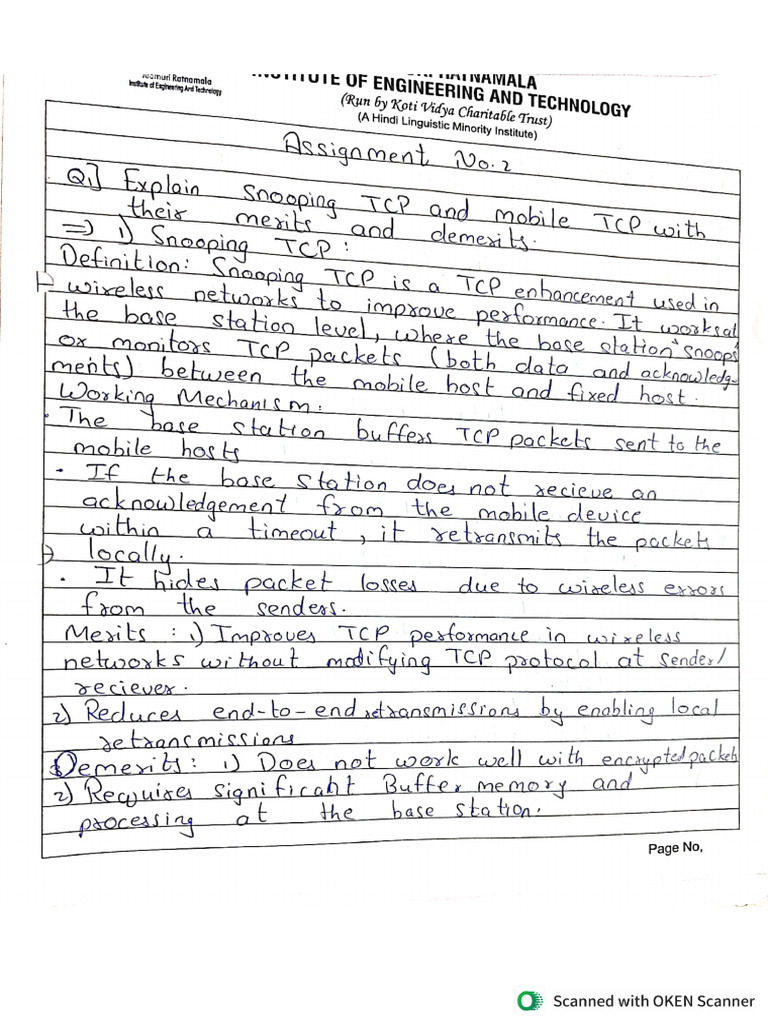 Ratnamala
Institute of Engineering And Technology
RATNAMALA
INSTITUTE OF ENGINEERING AND TECHNOLOGY
(Run by Koti Vidya Charitable Trust)
(A Hindi Linguistic Minority Institute)
Assignment No.2
Q1] Explain Snooping TCP and mobile TCP with
their merits and demerits.
=> 1) Snooping TCP :
Definition: Snooping TCP is a TCP enhancement used in
wireless networks to improve performance. It works at
the base station level, where the base station "snoops"
or monitors TCP packets (both data and acknowledg-
ments) between the mobile host and fixed host.
Working Mechanism:
· The base station buffers TCP packets sent to the
mobile hosts
· If the base station does not recieve an
acknowledgement from the mobile device
within a timeout, it retransmits the packets
locally.
· It hides packet losses due to wireless errors
from the senders.
Merits : 1) Improves TCP performance in wireless
networks without modifying TCP protocol at sender/
reciever.
2) Reduces end-to-end retransmissions by enabling local
retransmissions
Demerits: 1) Does not work well with encrypted packets
2) Requires significant Buffer memory and
processing at the base station.
Page No,
Scanned with OKEN Scanner